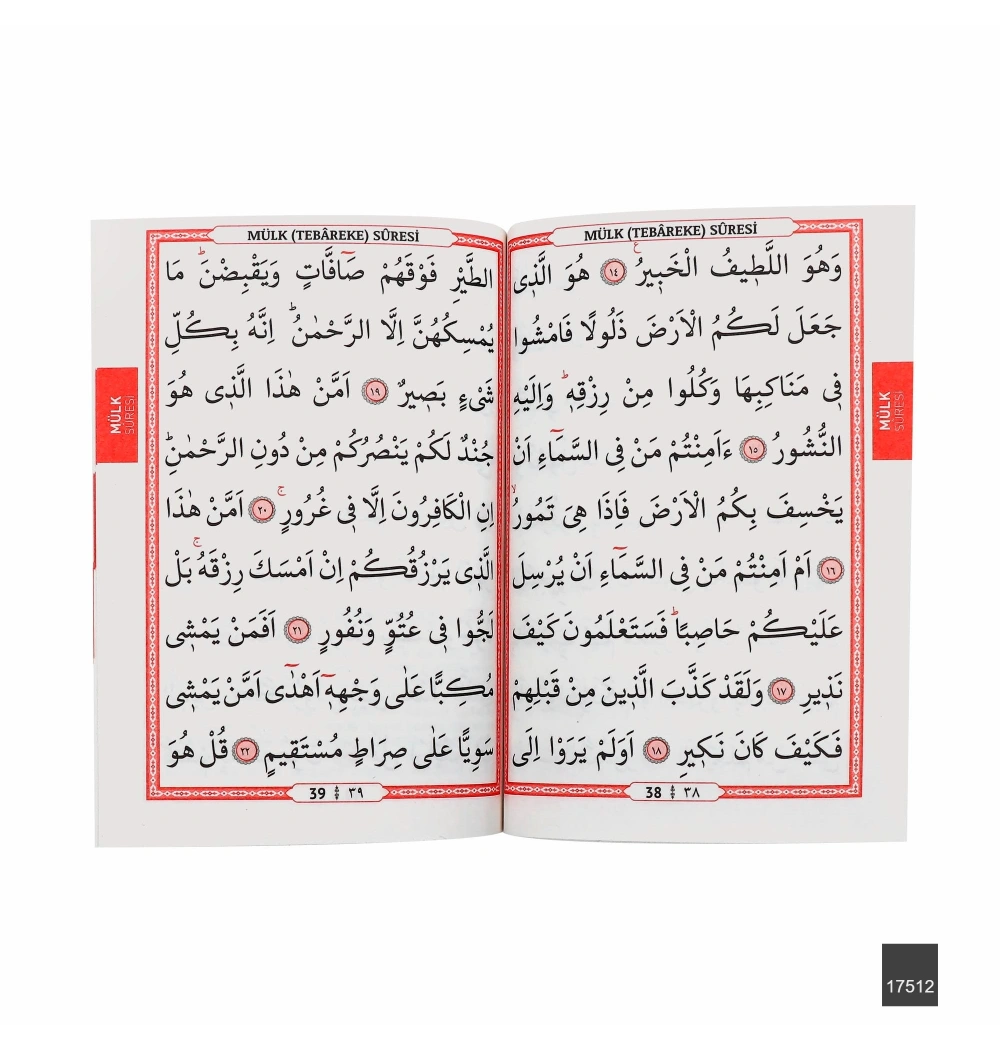 MÜLK (TEBÂREKE) SÛRESİ
وَهُوَ اللَّط۪يفُ الْخَب۪يرُ ﴿١٤﴾ هُوَ الَّذ۪ي
جَعَلَ لَكُمُ الْاَرْضَ ذَلُولًا فَامْشُوا
ف۪ي مَنَاكِبِهَا وَكُلُوا مِنْ رِزْقِه۪ۜ وَاِلَيْهِ
النُّشُورُ ﴿١٥﴾ ءَاَمِنْتُمْ مَنْ فِي السَّمَٓاءِ اَنْ
يَخْسِفَ بِكُمُ الْاَرْضَ فَاِذَا هِيَ تَمُورُۙ
﴿١٦﴾ اَمْ اَمِنْتُمْ مَنْ فِي السَّمَٓاءِ اَنْ يُرْسِلَ
عَلَيْكُمْ حَاصِبًاۜ فَسَتَعْلَمُونَ كَيْفَ
نَذ۪يرِ ﴿١٧﴾ وَلَقَدْ كَذَّبَ الَّذ۪ينَ مِنْ قَبْلِهِمْ
فَكَيْفَ كَانَ نَك۪يرِ ﴿١٨﴾ اَوَلَمْ يَرَوْا اِلَى
38 ٣٨
MÜLK
SÛRESİ
MÜLK (TEBÂREKE) SÛRESİ
الطَّيْرِ فَوْقَهُمْ صَٓافَّاتٍ وَيَقْبِضْنَۜ مَا
يُمْسِكُهُنَّ اِلَّا الرَّحْمٰنُۜ اِنَّهُ بِكُلِّ
شَيْءٍ بَص۪يرٌ ﴿١٩﴾ اَمَّنْ هٰذَا الَّذ۪ي هُوَ
جُنْدٌ لَكُمْ يَنْصُرُكُمْ مِنْ دُونِ الرَّحْمٰنِۜ
اِنِ الْكَافِرُونَ اِلَّا ف۪ي غُرُورٍۚ ﴿٢٠﴾ اَمَّنْ هٰذَا
الَّذ۪ي يَرْزُقُكُمْ اِنْ اَمْسَكَ رِزْقَهُۚ بَلْ
لَجُّوا ف۪ي عُتُوٍّ وَنُفُورٍ ﴿٢١﴾ اَفَمَنْ يَمْش۪ي
مُكِبًّا عَلٰى وَجْهِه۪ٓ اَهْدٰٓى اَمَّنْ يَمْش۪ي
سَوِيًّا عَلٰى صِرَاطٍ مُسْتَق۪يمٍ ﴿٢٢﴾ قُلْ هُوَ
39 ٣٩
MÜLK
SÛRESİ
17512